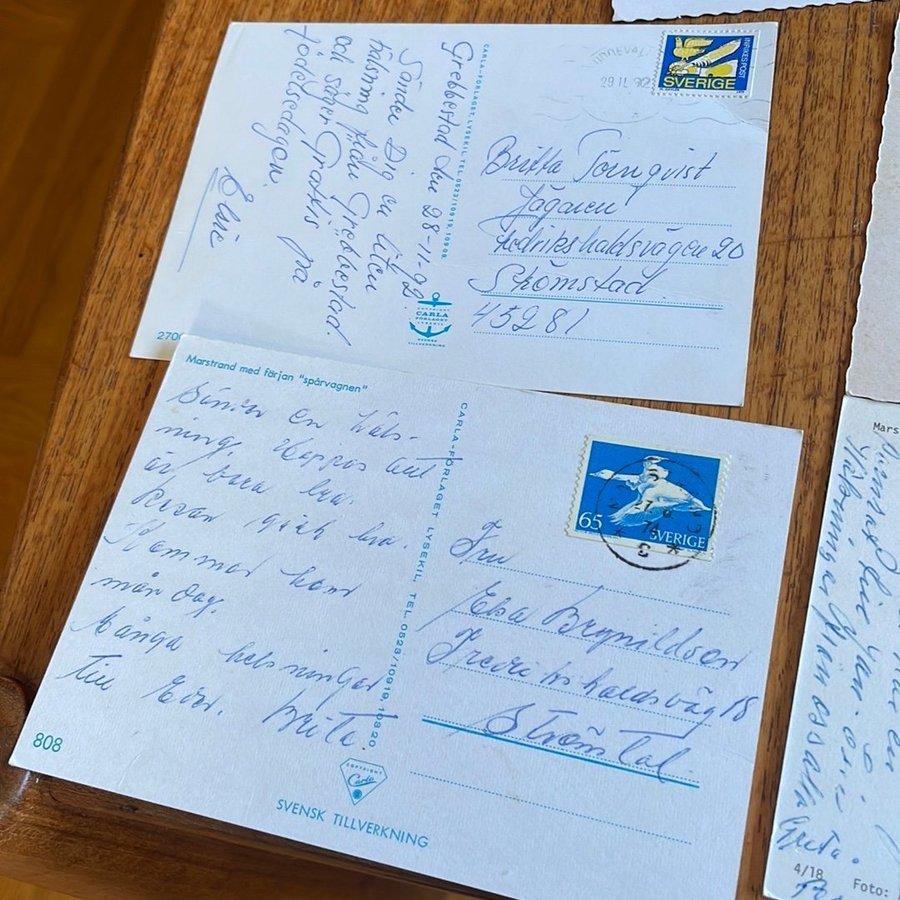 Grebbestad den 28-11-92
Sänder Dig en liten
hälsning från Grebbestad
och säger Grattis på
födelsedagen.
Elsie
CARLA-FÖRLAGET, LYSEKIL, TEL. 0523/10919, 10909
29 11 92
INRIKES POST
SVERIGE
Britta Törnquist
Jägaren
Fredrikshaldsvägen 20
Strömstad
45281
COPYRIGHT
CARLA
FÖRLAGET
LYSEKIL
SVENSK
TILLVERKNING
2700
Marstrand med färjan "spårvagnen"
Sänder en häls-
ning. Hoppas att
är bara bra.
Resan gick bra.
Kommer hem
måndag.
Många helsningar
till Eder. Brita.
808
CARLA-FÖRLAGET LYSEKIL, TEL. 0523/10919, 10820
65
SVERIGE
Fru
Elsa Brynildsen
Fredrikshaldsväg 18
COPYRIGHT
Carla
SVENSK TILLVERKNING
Mars
Greta.
4/18
Foto: